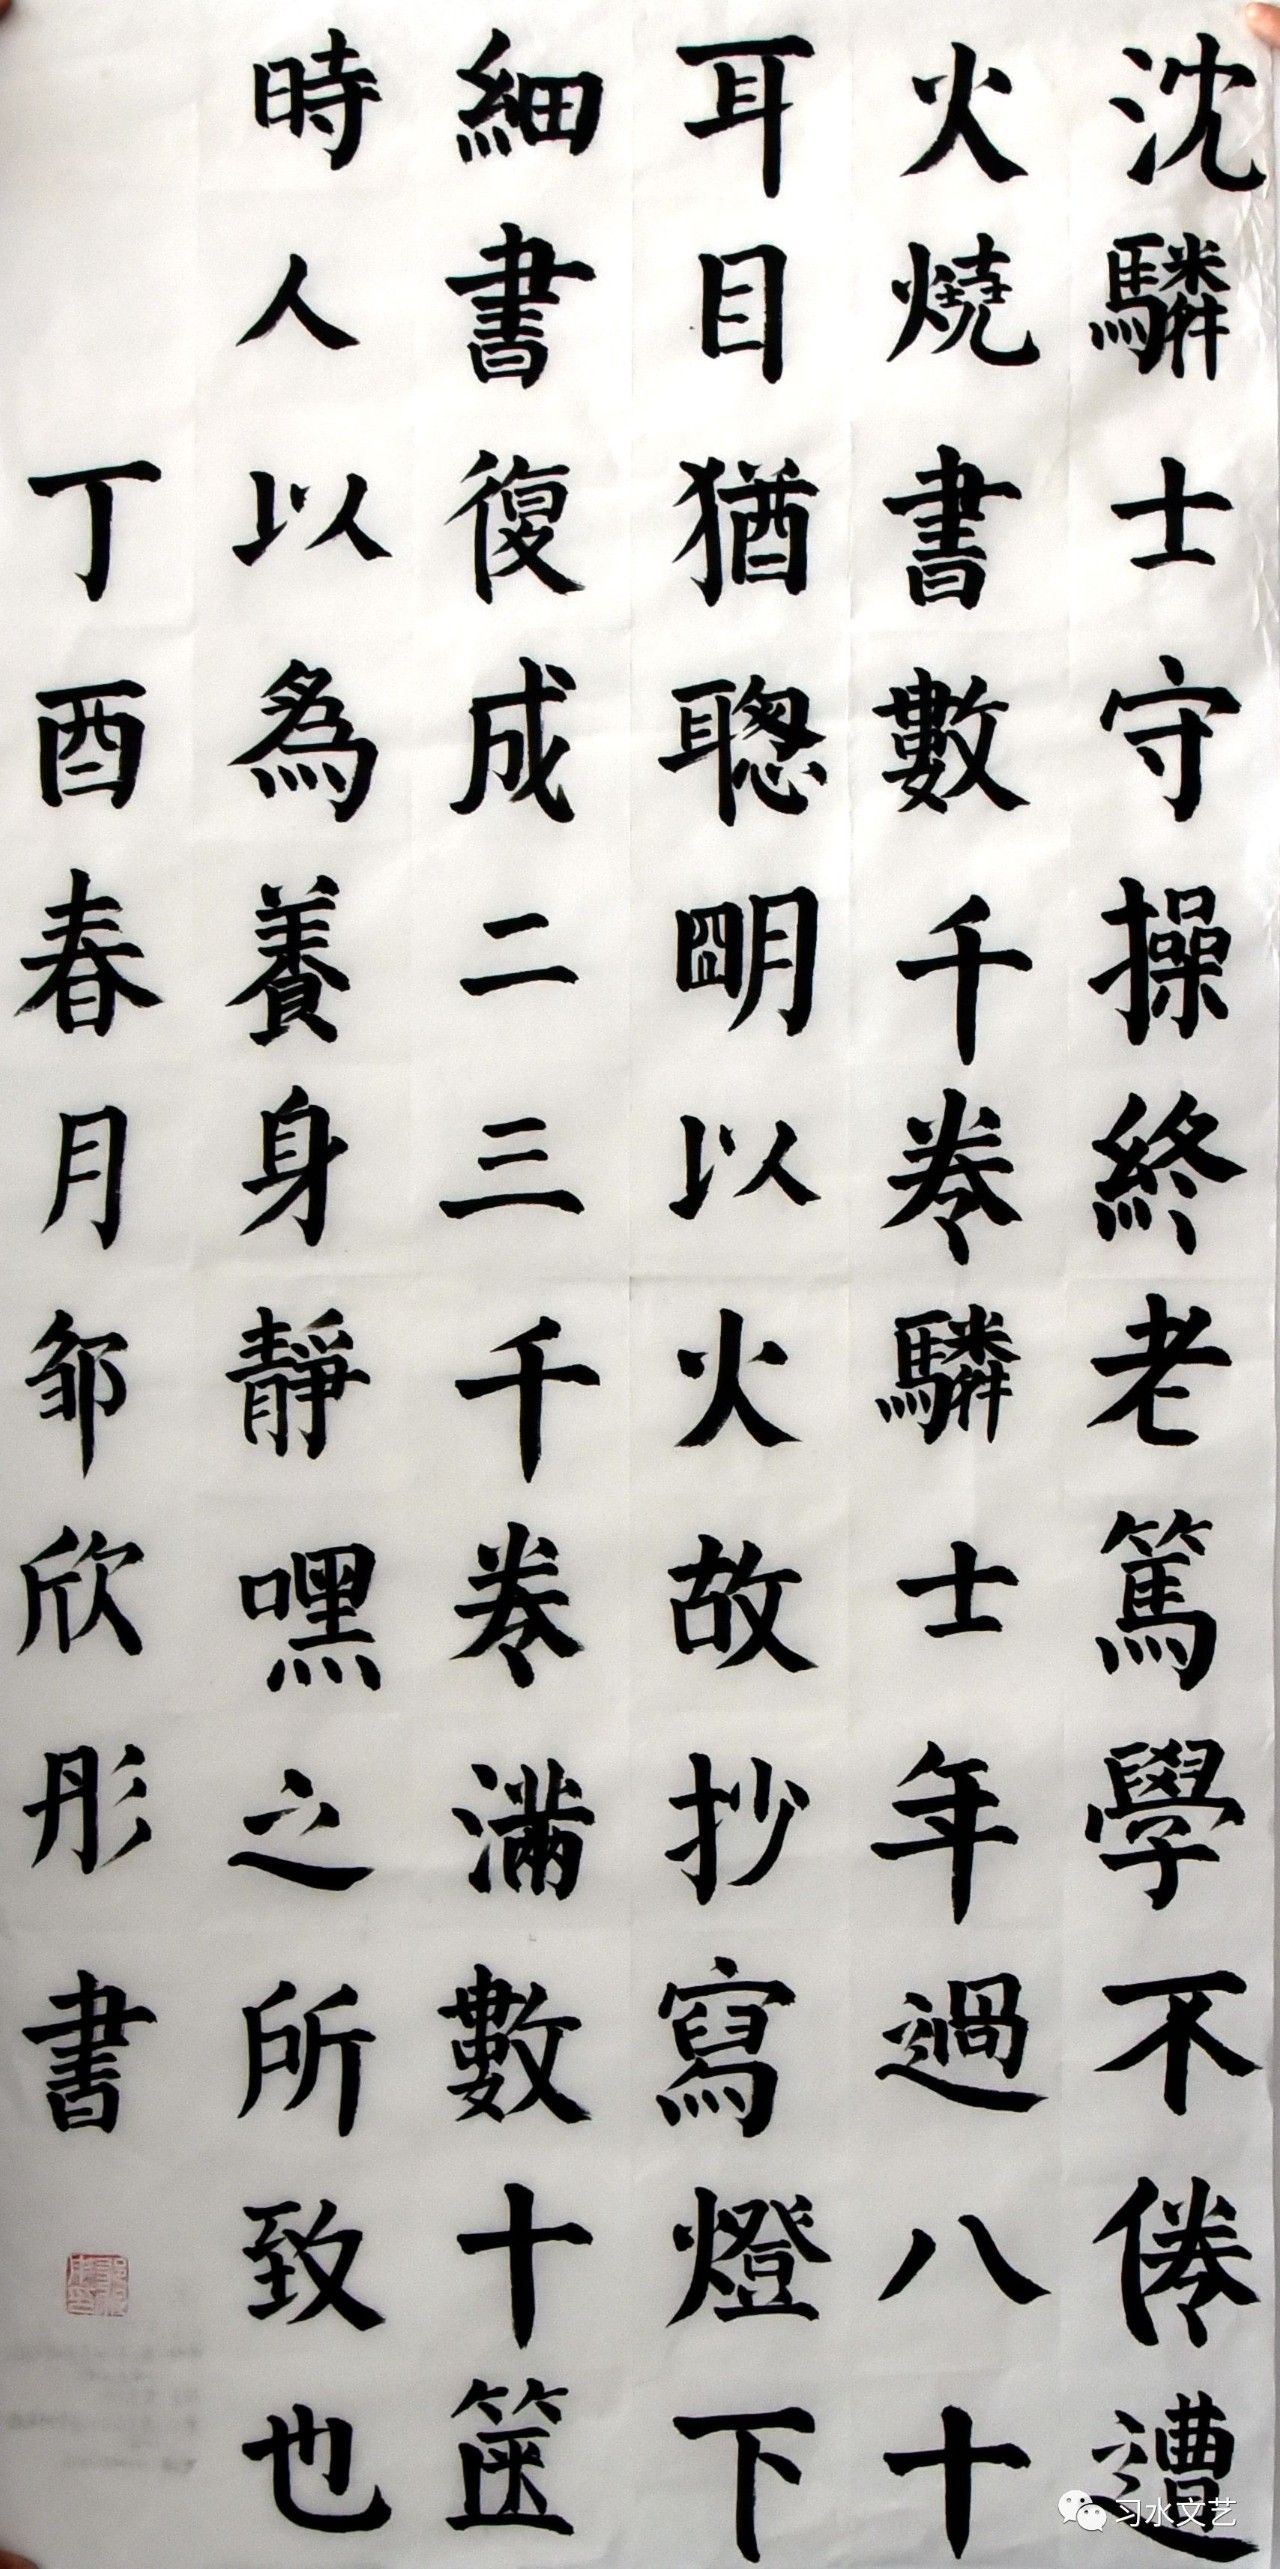 沈驎士守操終老篤學不倦遭
火燒書數千卷驎士年過八十
耳目猶聰明以火故抄寫燈下
細書復成二三千卷滿數十篋
時人以為養身靜嘿之所致也
丁酉春月邹欣彤書
习水文艺